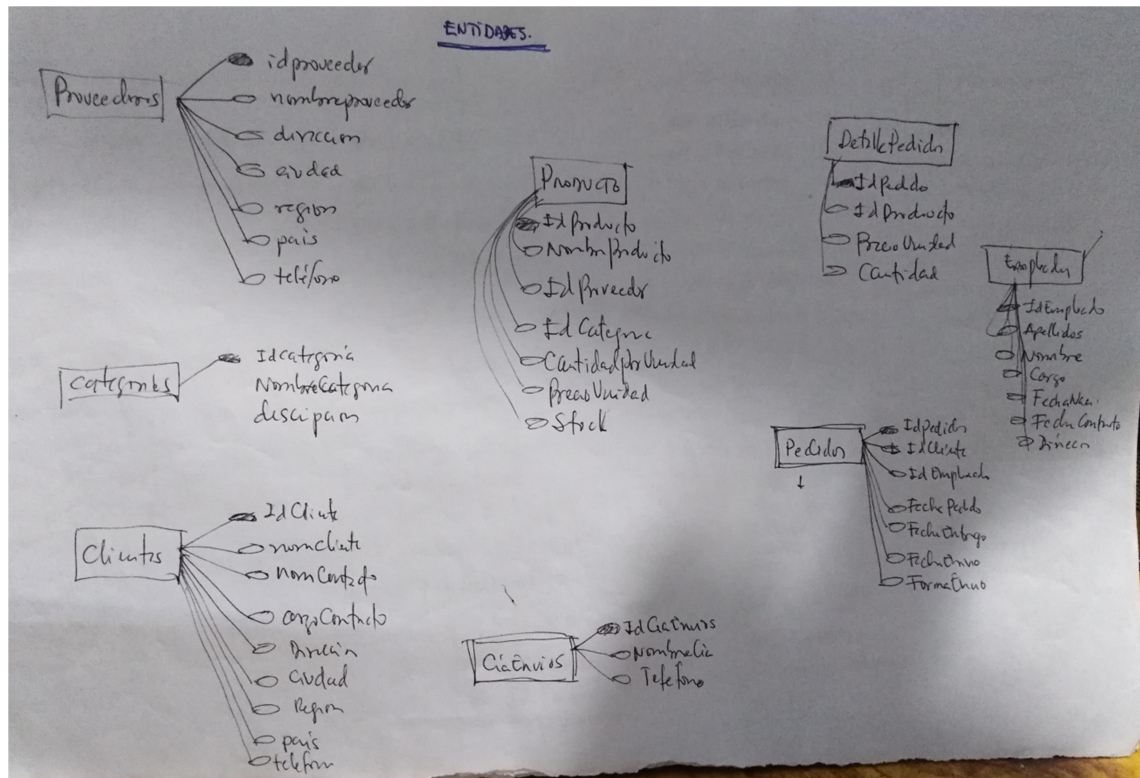 ENTIDADES.
Proveedores
idproveedor
nombreproveedor
direccion
ciudad
region
país
teléfono
Categorías
Idcategoría
NombreCategoria
Clientes
IdCliente
nomcliente
nomContacto
cargoContacto
Dirección
Ciudad
Region
país
telefono
PRODUCTO
IdProducto
NombreProducto
IdProveedor
IdCategoria
CantidadporUnidad
PrecioUnidad
Stock
CíaEnvíos
IdCiaEnvios
NombreCia
Telefono
DetallePedidos
IdPedido
IdProducto
PrecioUnidad
Cantidad
Empleados
IdEmpleado
Apellidos
Nombre
Cargo
FechaContrato
Pedidos
IdPedidos
IdCliente
IdEmpleado
FechaPedido
FechaEntrega
FechaEnvio
FormaEnvio